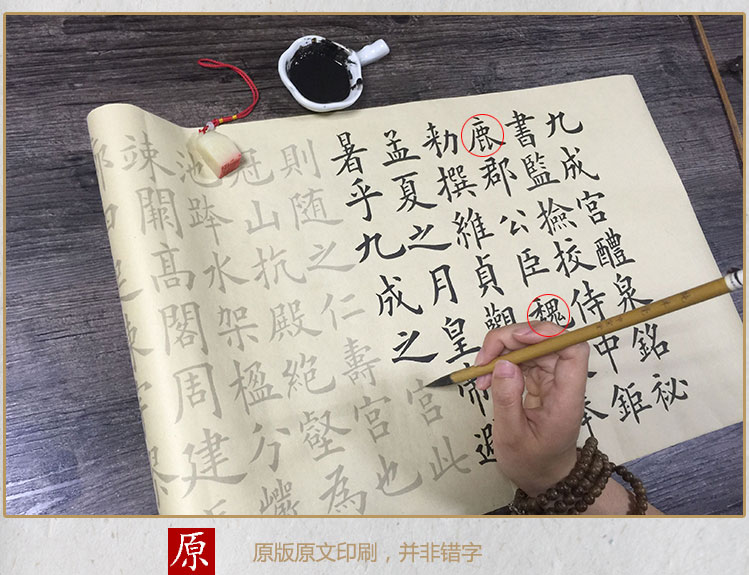 九成宮醴泉銘祕
書監撿校侍中鉅
鹿郡公臣魏奉
勅撰維貞觀
孟夏之月皇帝避
暑乎九成之宮此
則随之仁壽宮也
冠山抗殿絕壑為
池跨水架楹分巗
竦闕高閣周建
原
原版原文印刷，并非错字